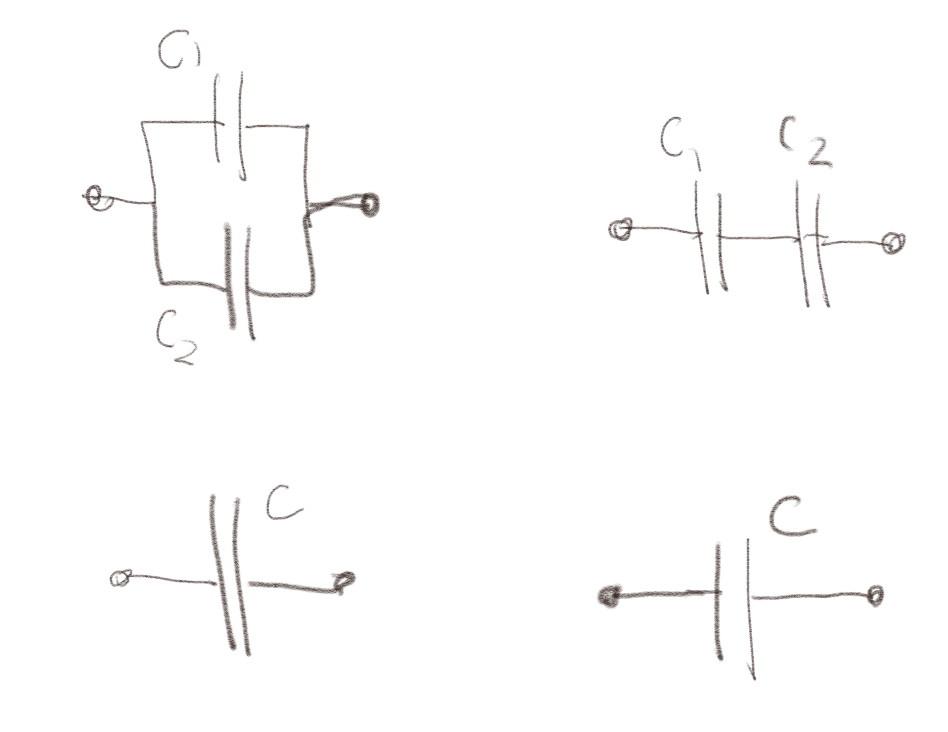 C1
C1 C2
C2
C
C